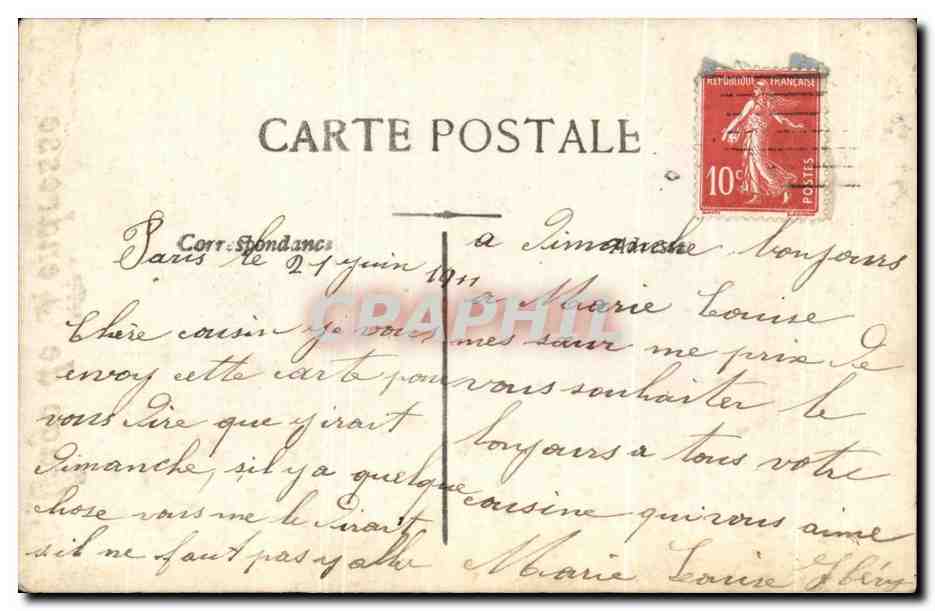 CARTE POSTALE
REPUBLIQUE FRANÇAISE
10c
POSTES
Correspondance
Paris le 21 juin 1911
Chère cousin je vous
envoy cette carte pour
vous dire que j'irait
Dimanche, s,il y a quelque
chose vous me le dirait
s'il ne faut pas y aller
a Dimanche bonjours
a Marie Louise
mes sœur me prix de
vous souhaiter le
bonjours a tous votre
cousine qui vous aime
Marie Louise
CRAPHIL